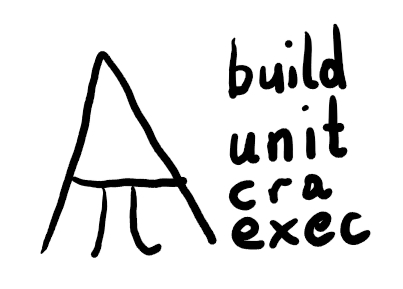 build
unit
cra
exec